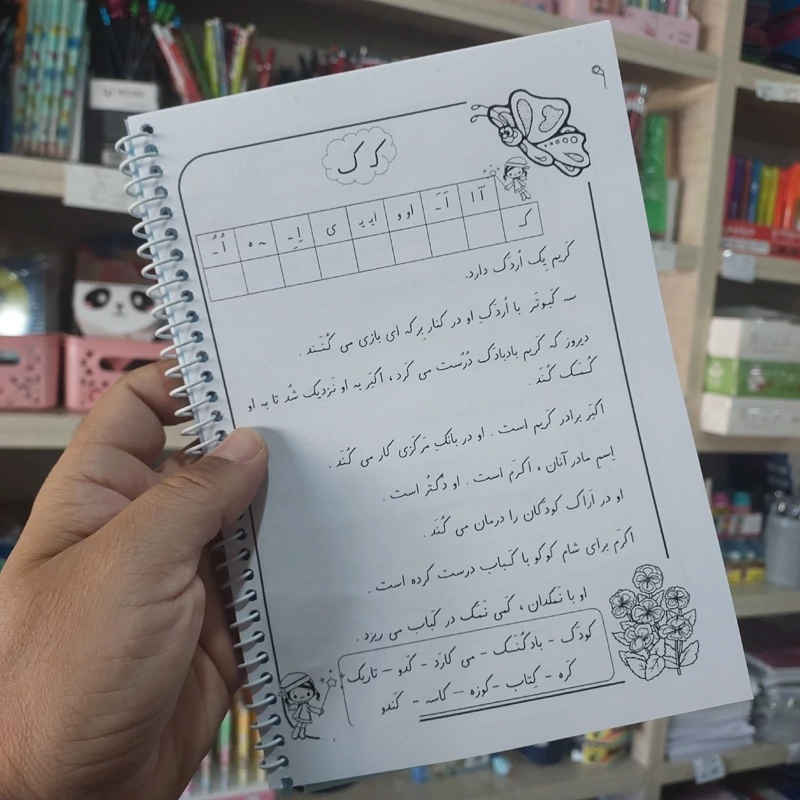 کـ ک
آ ا | اَ ـَ | او و | ایـ یـ | ی | اِ ـِ | ـه ه | اُ ـُ
کـ
کَریم یِک اُردَک دارد.
سه کَبوتَر با اُردَکِ او در کنار بِرکه ای بازی می کُنَند .
دیروز که کَریم بادبادَک دُرُست می کَرد ، اَکبَر به او نَزدیک شُد تا به او
کُمَک کُنَد .
اَکبَر برادرِ کَریم است . او در بانکِ مَرکَزی کار می کُنَد .
اِسمِ مادرِ آنان ، اکرَم است . او دُکتُر است .
او در اَراک کودکان را درمان می کُنَد .
اکرَم برای شام کوکو با کَباب درست کرده است .
او با نَمَکدان ، کَمی نَمَک در کَباب می ریزد .
کودَک - بادکُنَک - می کارَد - کَدو - تاریک
کَره - کِتاب - کوزه - کاسه - کَندو